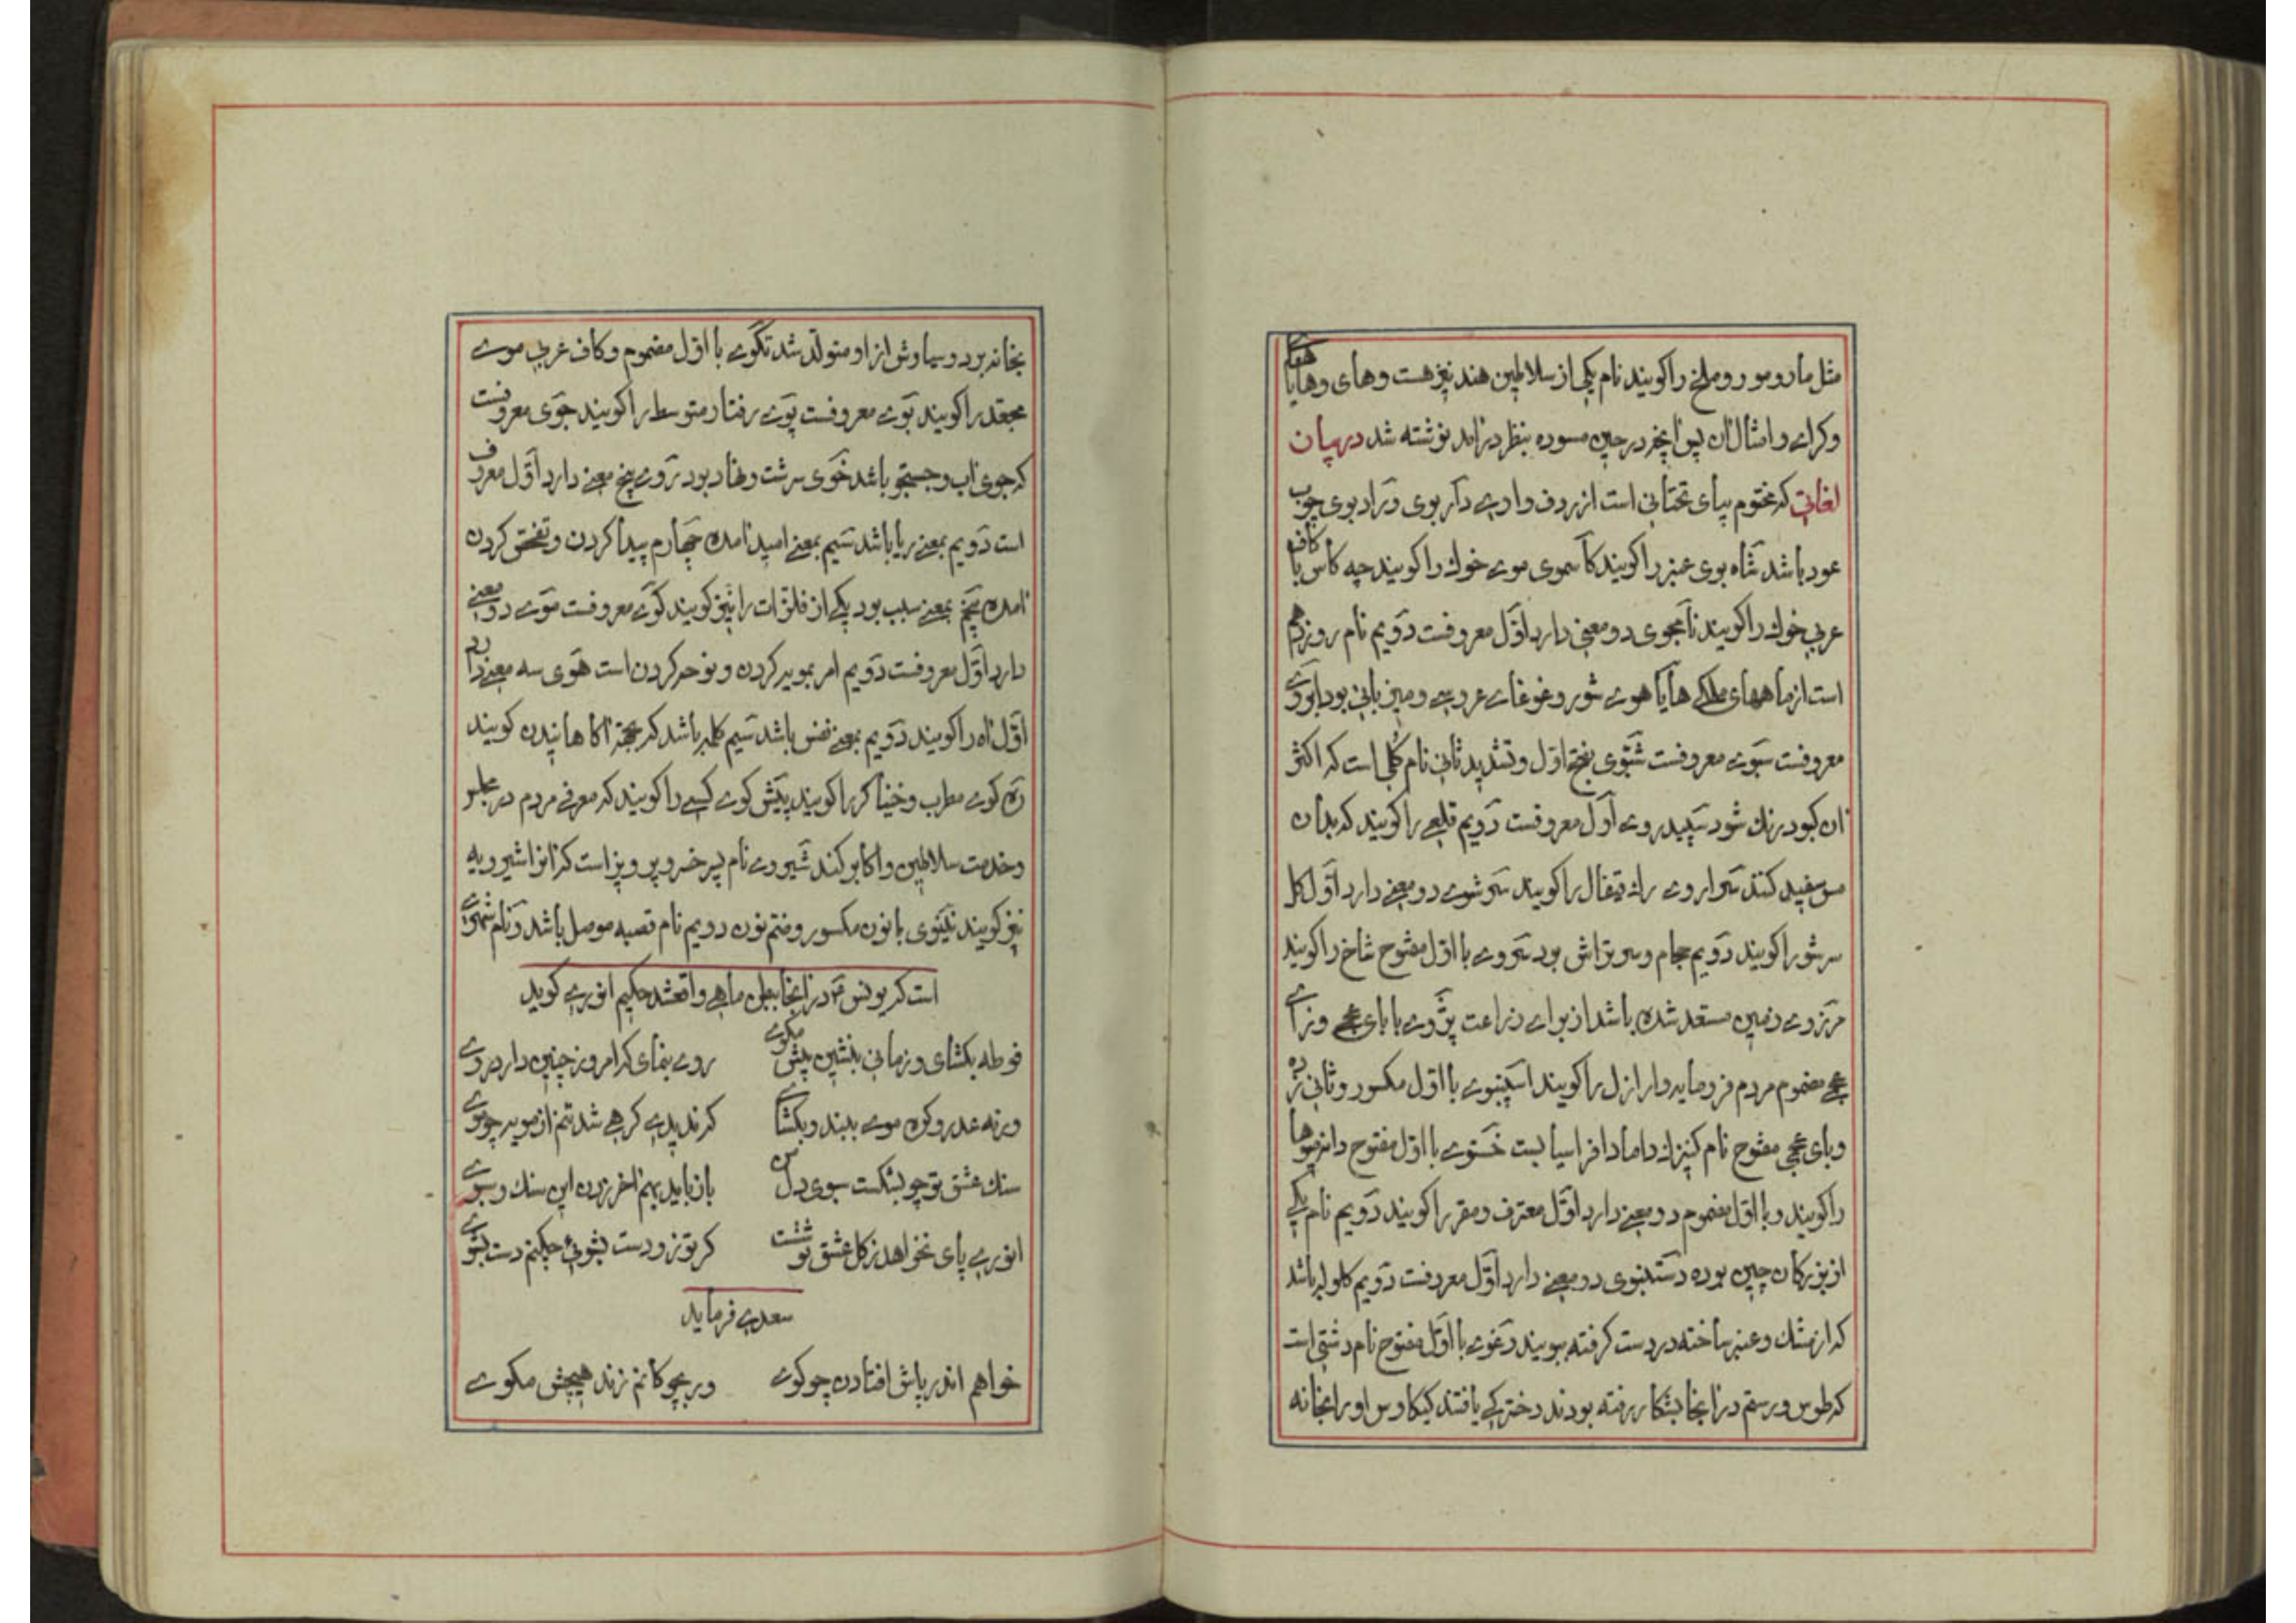 مثل مار و مور و ملخ را کویند نام یکی از سلاطین هند نیز هست و های و هایا
وکرای و امثال ان چون انچه در حین مسوده بنظر درامد نوشته شد در بیان
لغاتی که مختوم بیای تحتانی است از ردف واوی دار بوی و راد بوی چوب
عود باشد شاه بوی عنبر را کویند کاسموی موی خوک را کویند چه کاس با کاف
عربی خوک را کویند نامجوی دو معنی دارد اول معروفست دویم نام روز دهم
است از ماههای ملکی هایا هوی شور و غوغای عروسی و میزبانی بود ابوی
معروفست سبوی معروفست شبوی بفتح اول و تشدید ثانی نام کلی است که اکثر
ان کبود رنک شود سپید روی اول معروفست دویم قلعی را کویند که بدان
مس سفید کنند سواروی را کویند سرشوی دو معنی دارد اول کل
سرشور را کویند دویم حجام و سرتراش بود سروی با اول مفتوح شاخ را کویند
مرزوی زمین مستعد شده باشد از برای زراعت پژوی با بای عجمی و زای
عجمی مضموم مردم فرومایه و ارازل را کویند اسپنوی با اول مکسور و ثانی زده
وبای عجمی مفتوح نام کنیزک داماد افراسیا بست خستوی با اول مفتوح دانه میوها
را کویند و با اول مضموم دو معنی دارد اول معترف و مقر را کویند دویم نام یکی
از بزرکان چین بوده دستنبوی دو معنی دارد اول معروفست دویم کلوله باشد
که از مشک و عنبر ساخته در دست کرفته ببویند دغوی با اول مفتوح نام دشتی است
که طوس و رستم در انجا بشکار رفته بودند دخترکی یافتند کیکاوس او را بخانه
بخانه برد و سیاوش از او متولد شد تکوی با اول مضموم و کاف عربی موی
مجعد را کویند بوی معروفست پوی رفتار متوسط را کویند جوی معروفست
که جوی اب و جستجو باشد خوی سرشت و نهاد بود روی پنج معنی دارد اول معروف
است دویم بمعنی ریا باشد سیم بمعنی امید امده چهارم پیدا کردن و تفحص کردن
امده پنجم بمعنی سبب بود یکی از فلزات را نیز کویند کوی معروفست موی دو معنی
دارد اول معروفست دویم امر بمویه کردن و نوحه کردن است هوی سه معنی دارد
اول اه را کویند دویم بمعنی نفس باشد سیم کلمه باشد که بجهة اکاهانیدن کویند
ره کوی مطرب و خنیاکر را کویند پیش کوی کسی را کویند که معرفی مردم در مجلس
وخدمت سلاطین و اکابر کند شیروی نام پسر خسرو پرویز است که انرا شیرویه
نیز کویند نینوی با نون مکسور و ضم نون دویم نام قصبه موصل باشد و نام شهری
است که یونس در انجا ببطن ماهی واقعشد حکیم انوری کوید
فوطه بکشای و زمانی بنشین پیش مکوی روی بنمای که امروز چنین دارد روی
ورنه عذر و کره موی ببند و بکشای که ندیدی که هی شد تنم از مویه چو موی
سنک عشق تو چو بشکست سبوی دل من باز باید بهم اخر زدن این سنک و سبوی
انوری پای نخواهد ز کل عشق تو شست کر تو زو دست بشوئی چکنم دست بشوی
سعدی فرماید
خواهم اندر پاش افتادن چو کوی ور بچوکانم زند هیچش مکوی